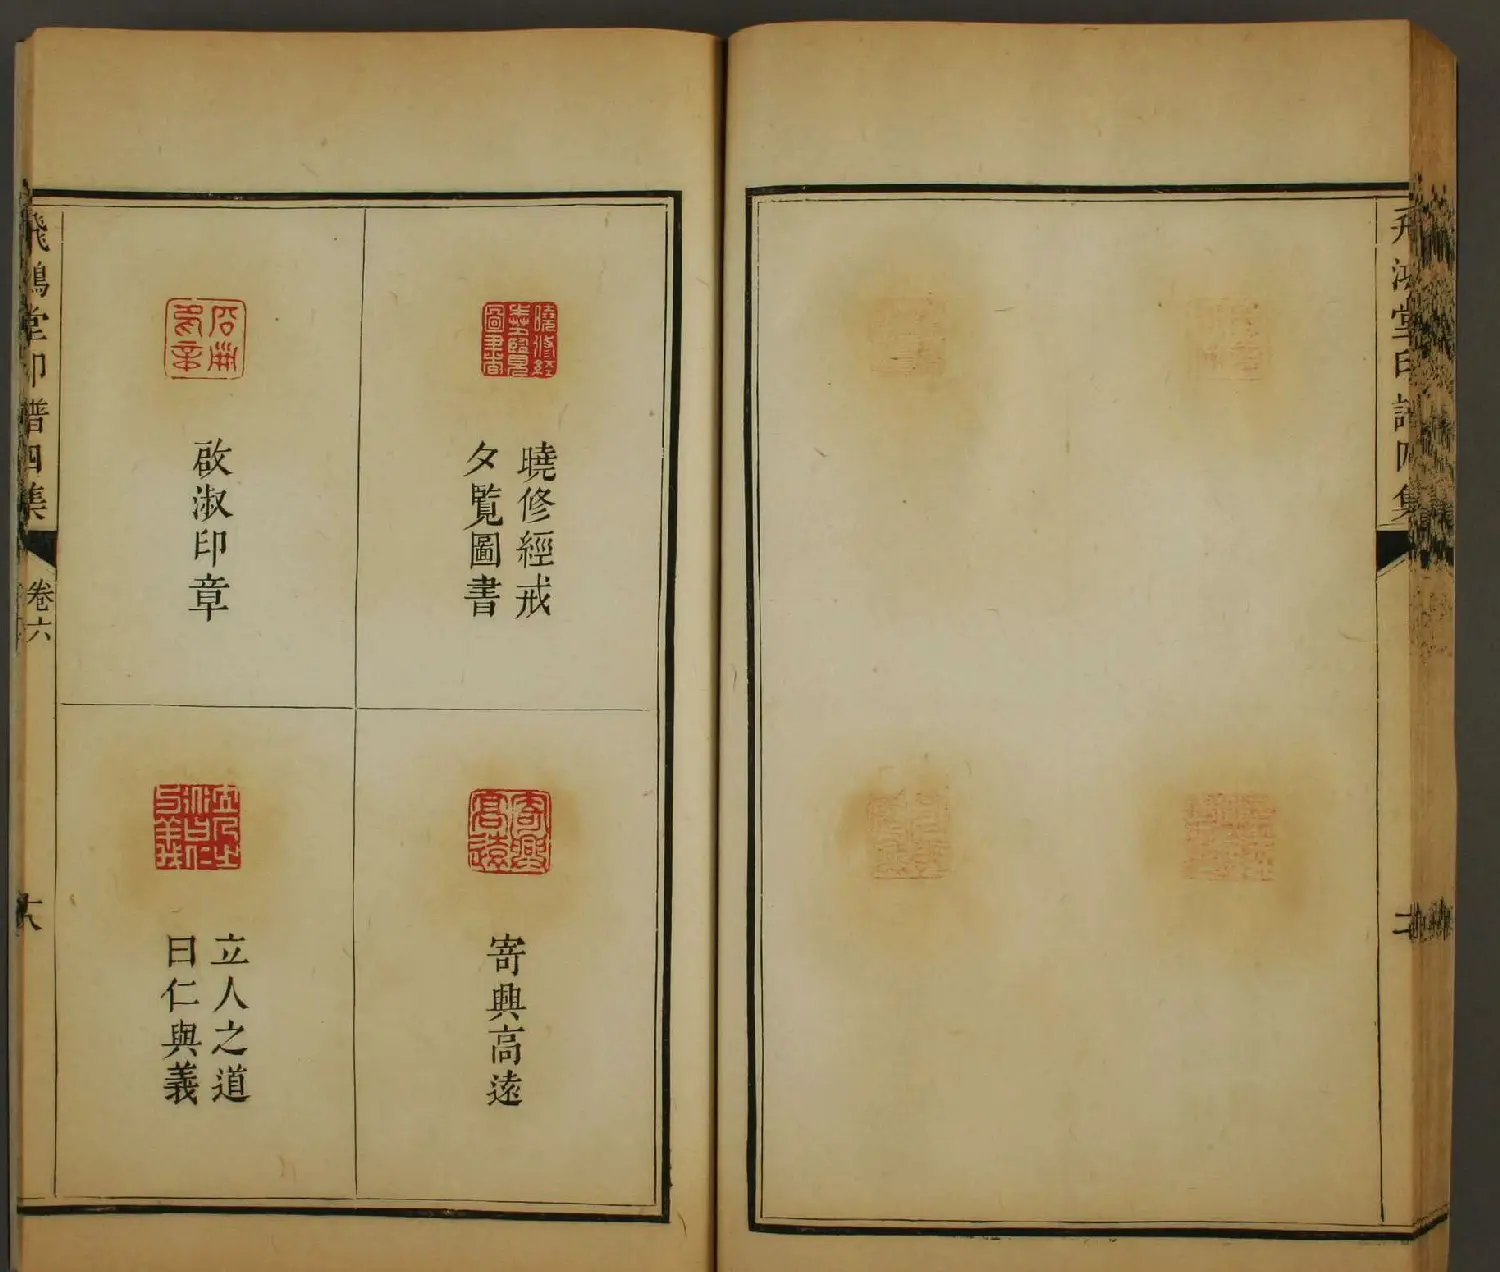 飛鴻堂印譜四集
曉修經戒
夕覧圖書
寄興高遠
啟淑印章
立人之道
曰仁與義
飛鴻堂印譜四集
卷六